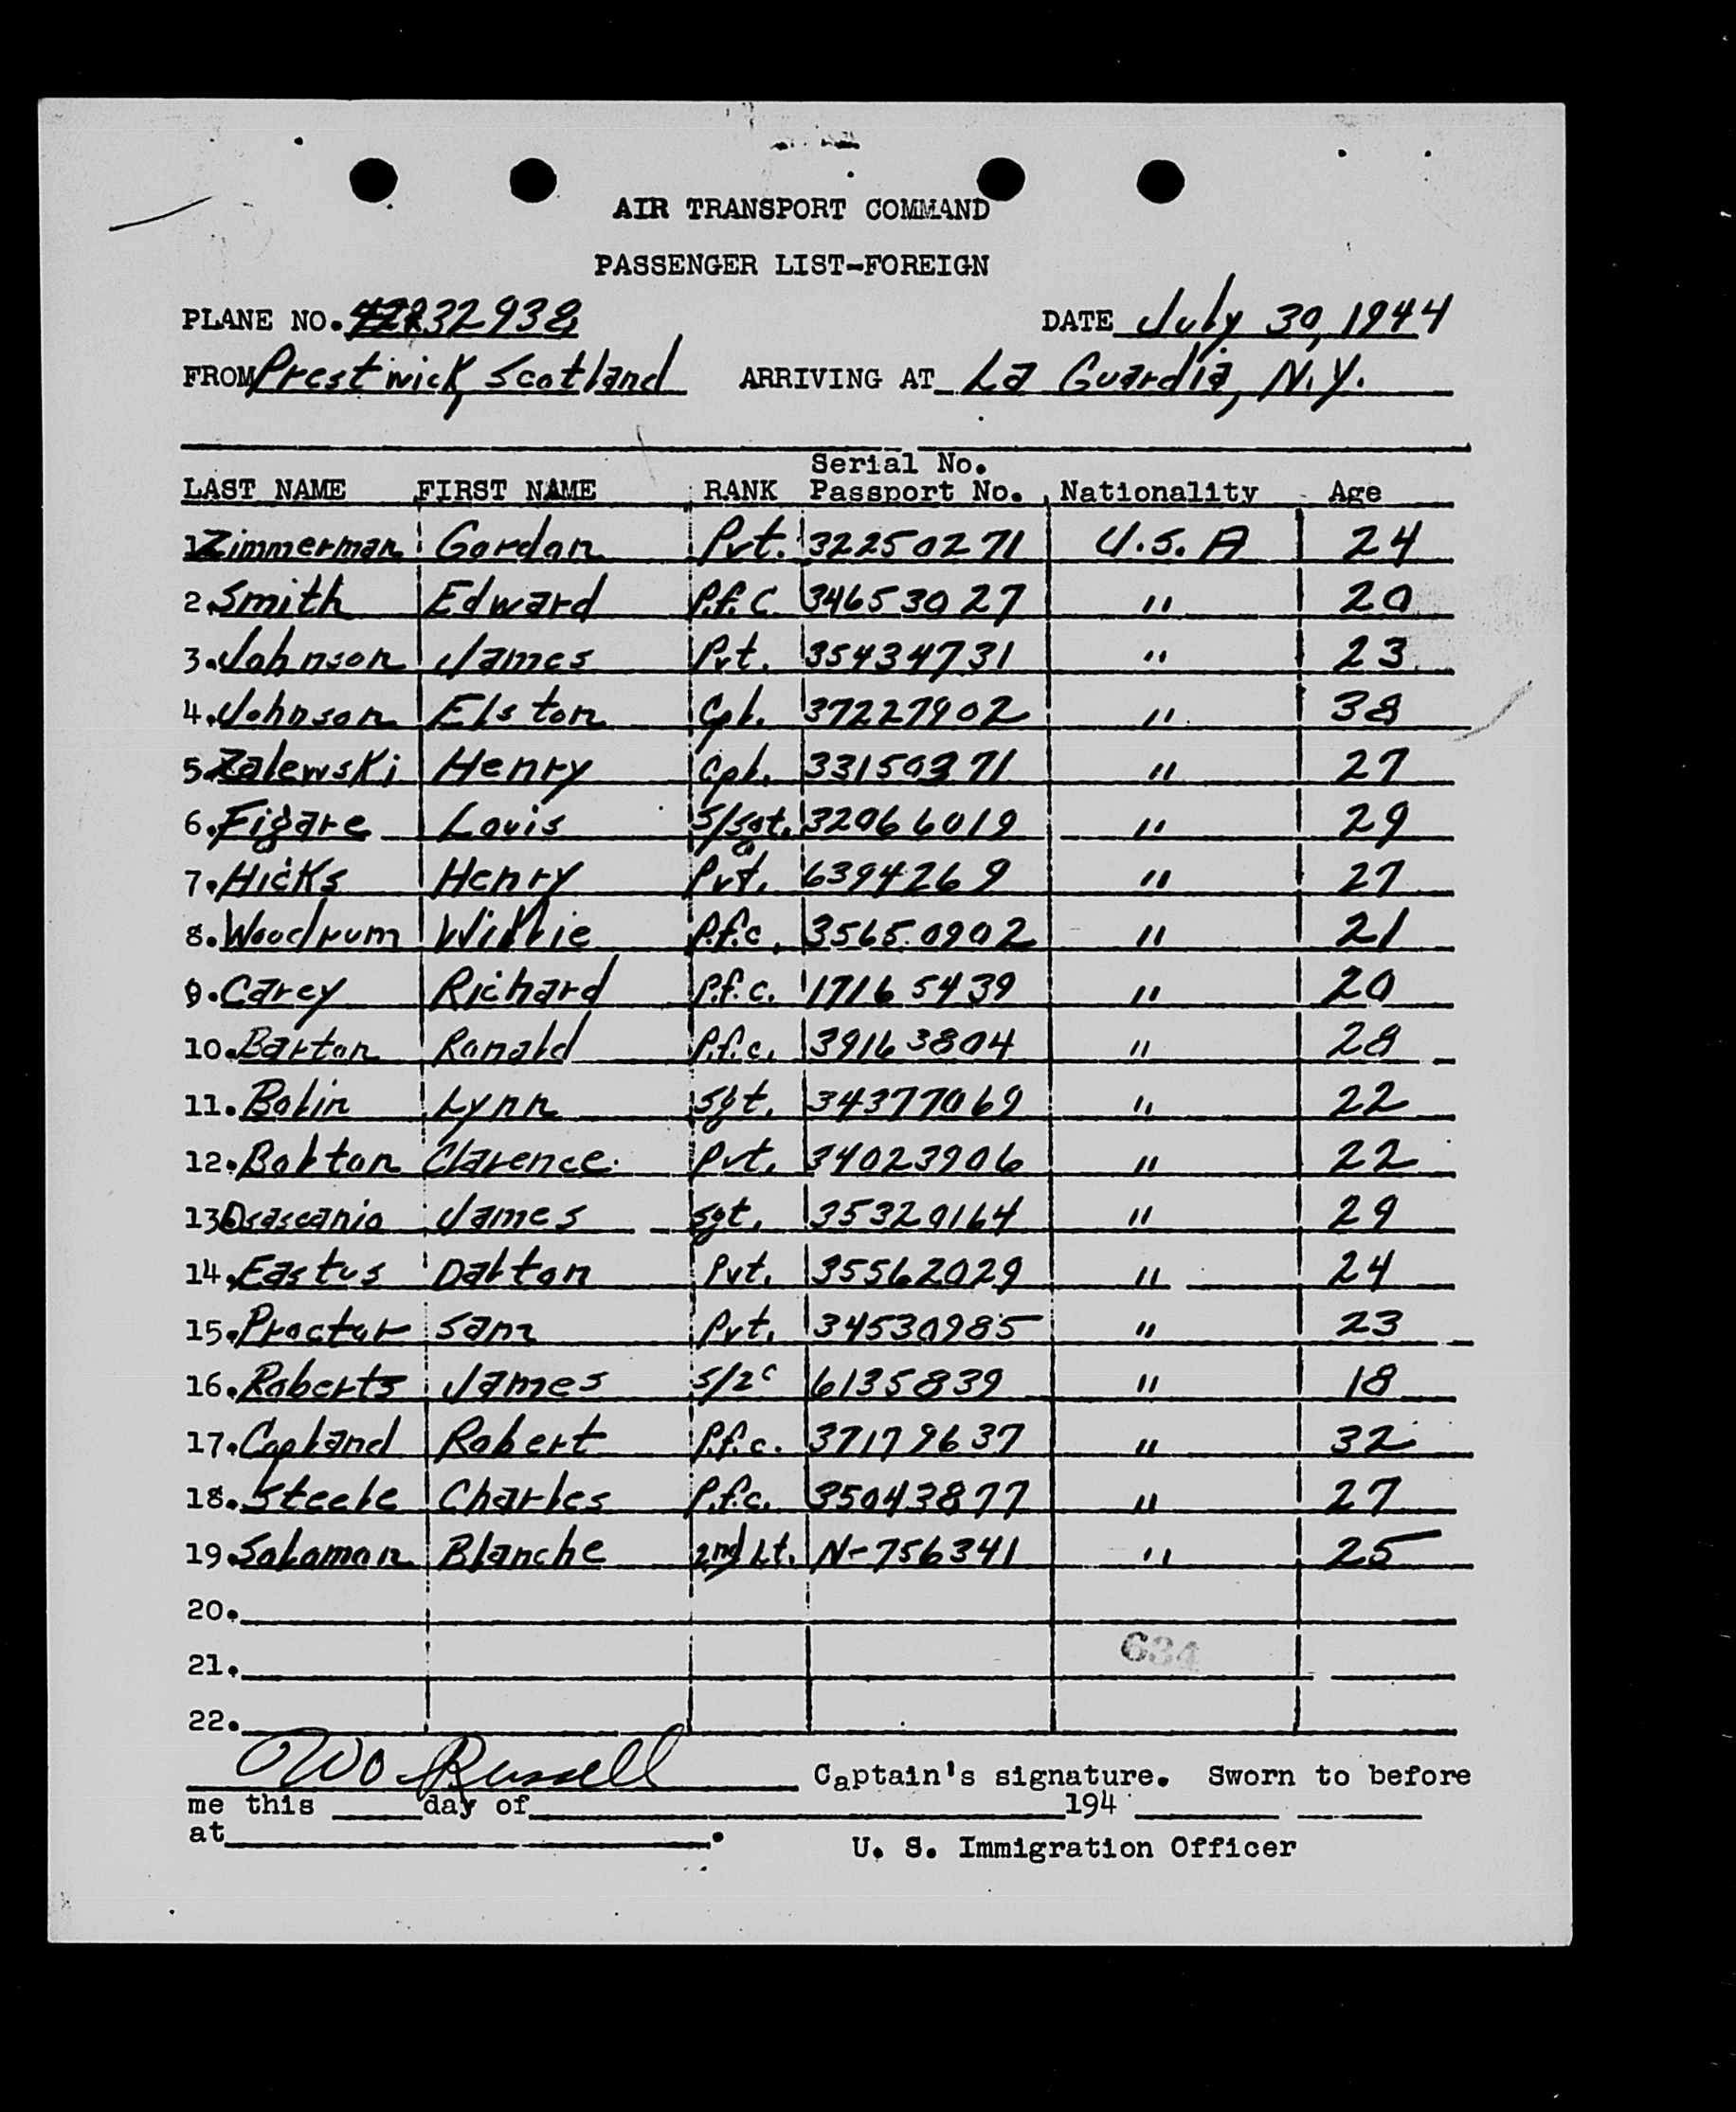 AIR TRANSPORT COMMAND
PASSENGER LIST-FOREIGN
PLANE NO. 32938 DATE July 30, 1944
FROM Prestwick, Scotland ARRIVING AT La Guardia, N.Y.
Serial No.
LAST NAME FIRST NAME RANK Passport No. Nationality Age
1. Zimmerman Gordon Pvt. 32250271 U.S.A 24
2. Smith Edward P.f.C. 34653027 " 20
3. Johnson James Pvt. 35434731 " 23
4. Johnson Elston Cpl. 37227902 " 38
5. Zalewski Henry Cpl. " 27
6. Figare Louis S/Sgt. 32066019 " 29
7. Hicks Henry Pvt. 6394269 " 27
8. Woodrum Willie P.f.c. 35650902 " 21
9. Carey Richard P.f.c. 17165439 " 20
10. Barton Ronald P.f.c. 39163804 " 28
11. Bolin Lynn Sgt. 34377069 " 22
12. Bolton Clarence Pvt. 34023906 " 22
13. James Sgt. 35320164 " 29
14. Eastus Dalton Pvt. 35562029 " 24
15. Proctor Sam Pvt. 34530985 " 23
16. Roberts James S/2c 6135839 " 18
17. Copland Robert P.f.c. 37179637 " 32
18. Steele Charles P.f.c. 35043877 " 27
19. Solomon Blanche 2nd Lt. N-756341 " 25
20.
21. 634
22.
Russell Captain's signature. Sworn to before
me this day of 194
at .
U. S. Immigration Officer